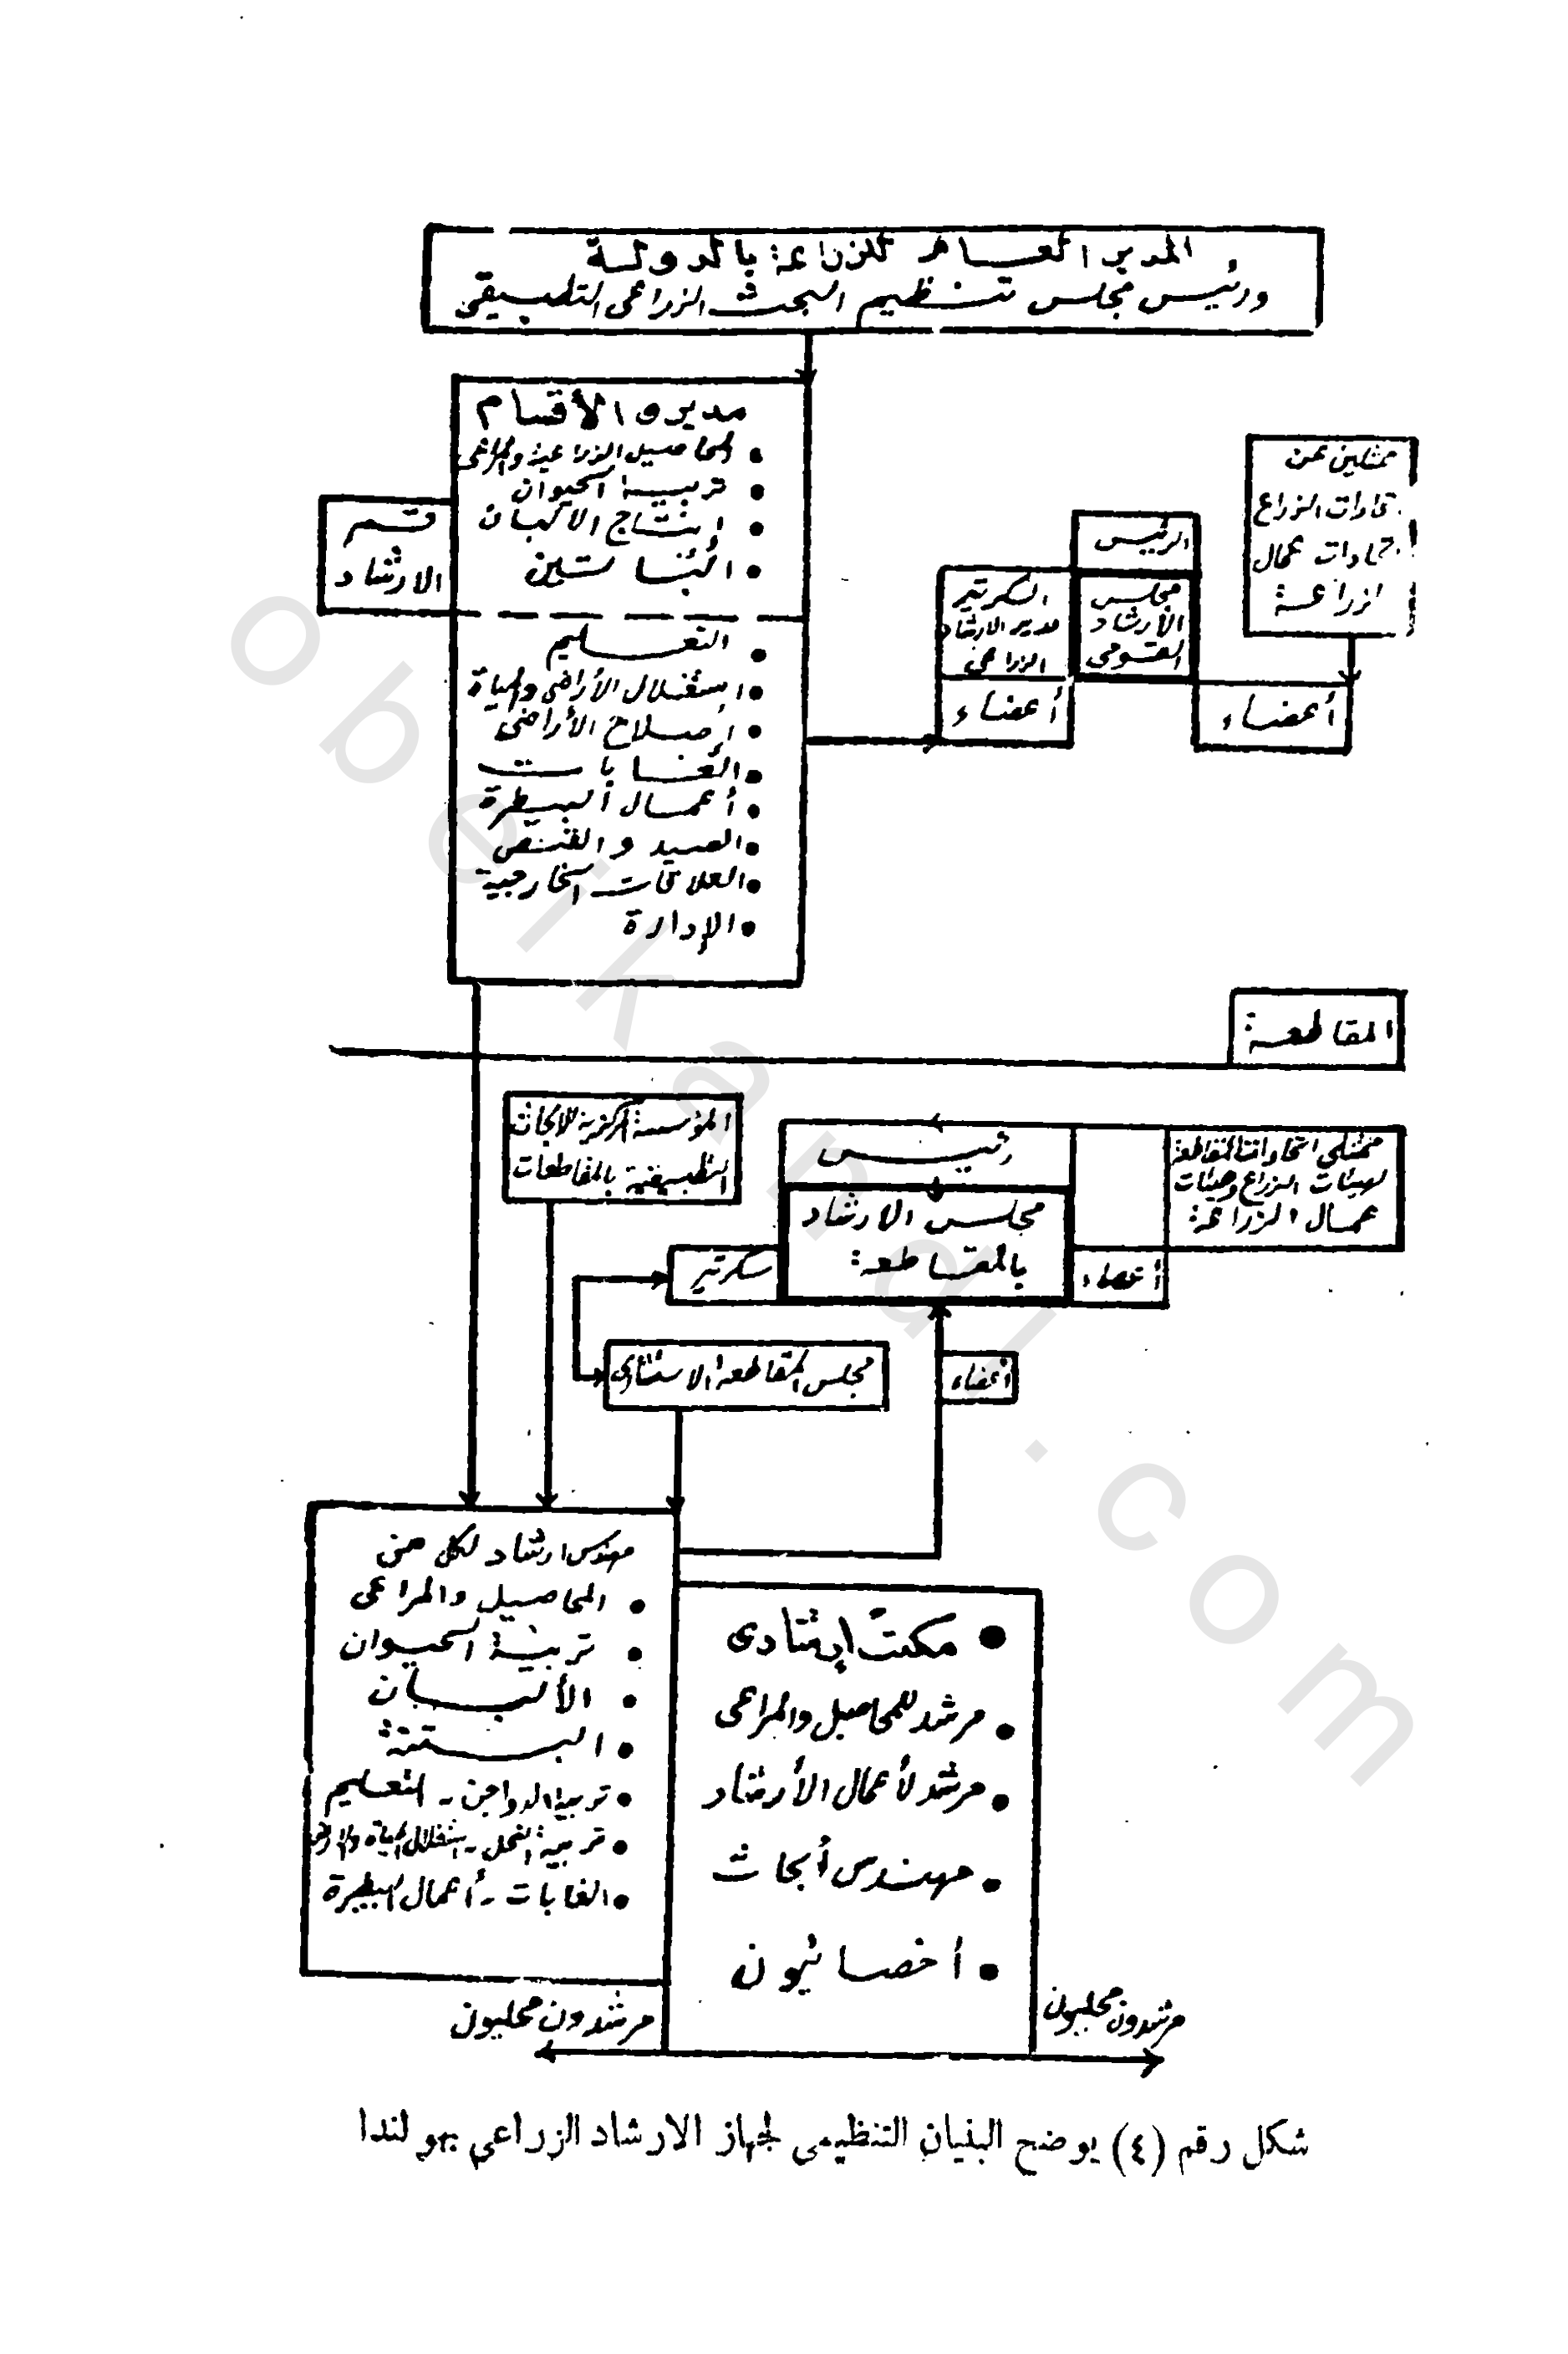 المدير العام للزراعة بالدولة
ورئيس مجلس تنظيم البحث الزراعى التطبيقى
مديرو الأقسام
• المحاصيل الزراعية والمراعى
• تربية الحيوان
• إنتاج الألبان
• البساتين
قسم
الارشاد
• التعليم
• استغلال الأراضى والمياة
• إصلاح الأراضى
• الغابات
• أعمال البيطرة
• الصيد والقنص
• العلاقات الخارجية
• الإدارة
ممثلين عن
الزراع
عمال
الزراعة
الرئيس
مجلس
الأرشاد
القومى
السكرتير
مدير الارشاد
الزراعى
أعضاء
أعضاء
المقاطعة
المؤسسة المركزية للأبحاث
التطبيقية بالمقاطعات
رئيس
مجلس الارشاد
بالمقاطعة
ممثلى اتحادات المقاطعة
لهيئات الزراع وهيئات
عمال الزراعة
أعضاء
سكرتير
مجلس المقاطعة الاستشارى
أعضاء
مهندس ارشاد لكل من
• المحاصيل والمراعى
• تربية الحيوان
• الألبان
• البستنة
• تربية الدواجن - التعليم
• تربية النحل - استغلال المياه
• الغابات - أعمال البيطرة
• مكتب إرشادى
• مرشد للمحاصيل والمراعى
• مرشد لأعمال الأرشاد
• مهندس أبحاث
• أخصائيون
مرشدون محليون
مرشدون محليون
شكل رقم (٤) يوضح البنيان التنظيمى لجهاز الارشاد الزراعي بهولندا
obeikandl.com